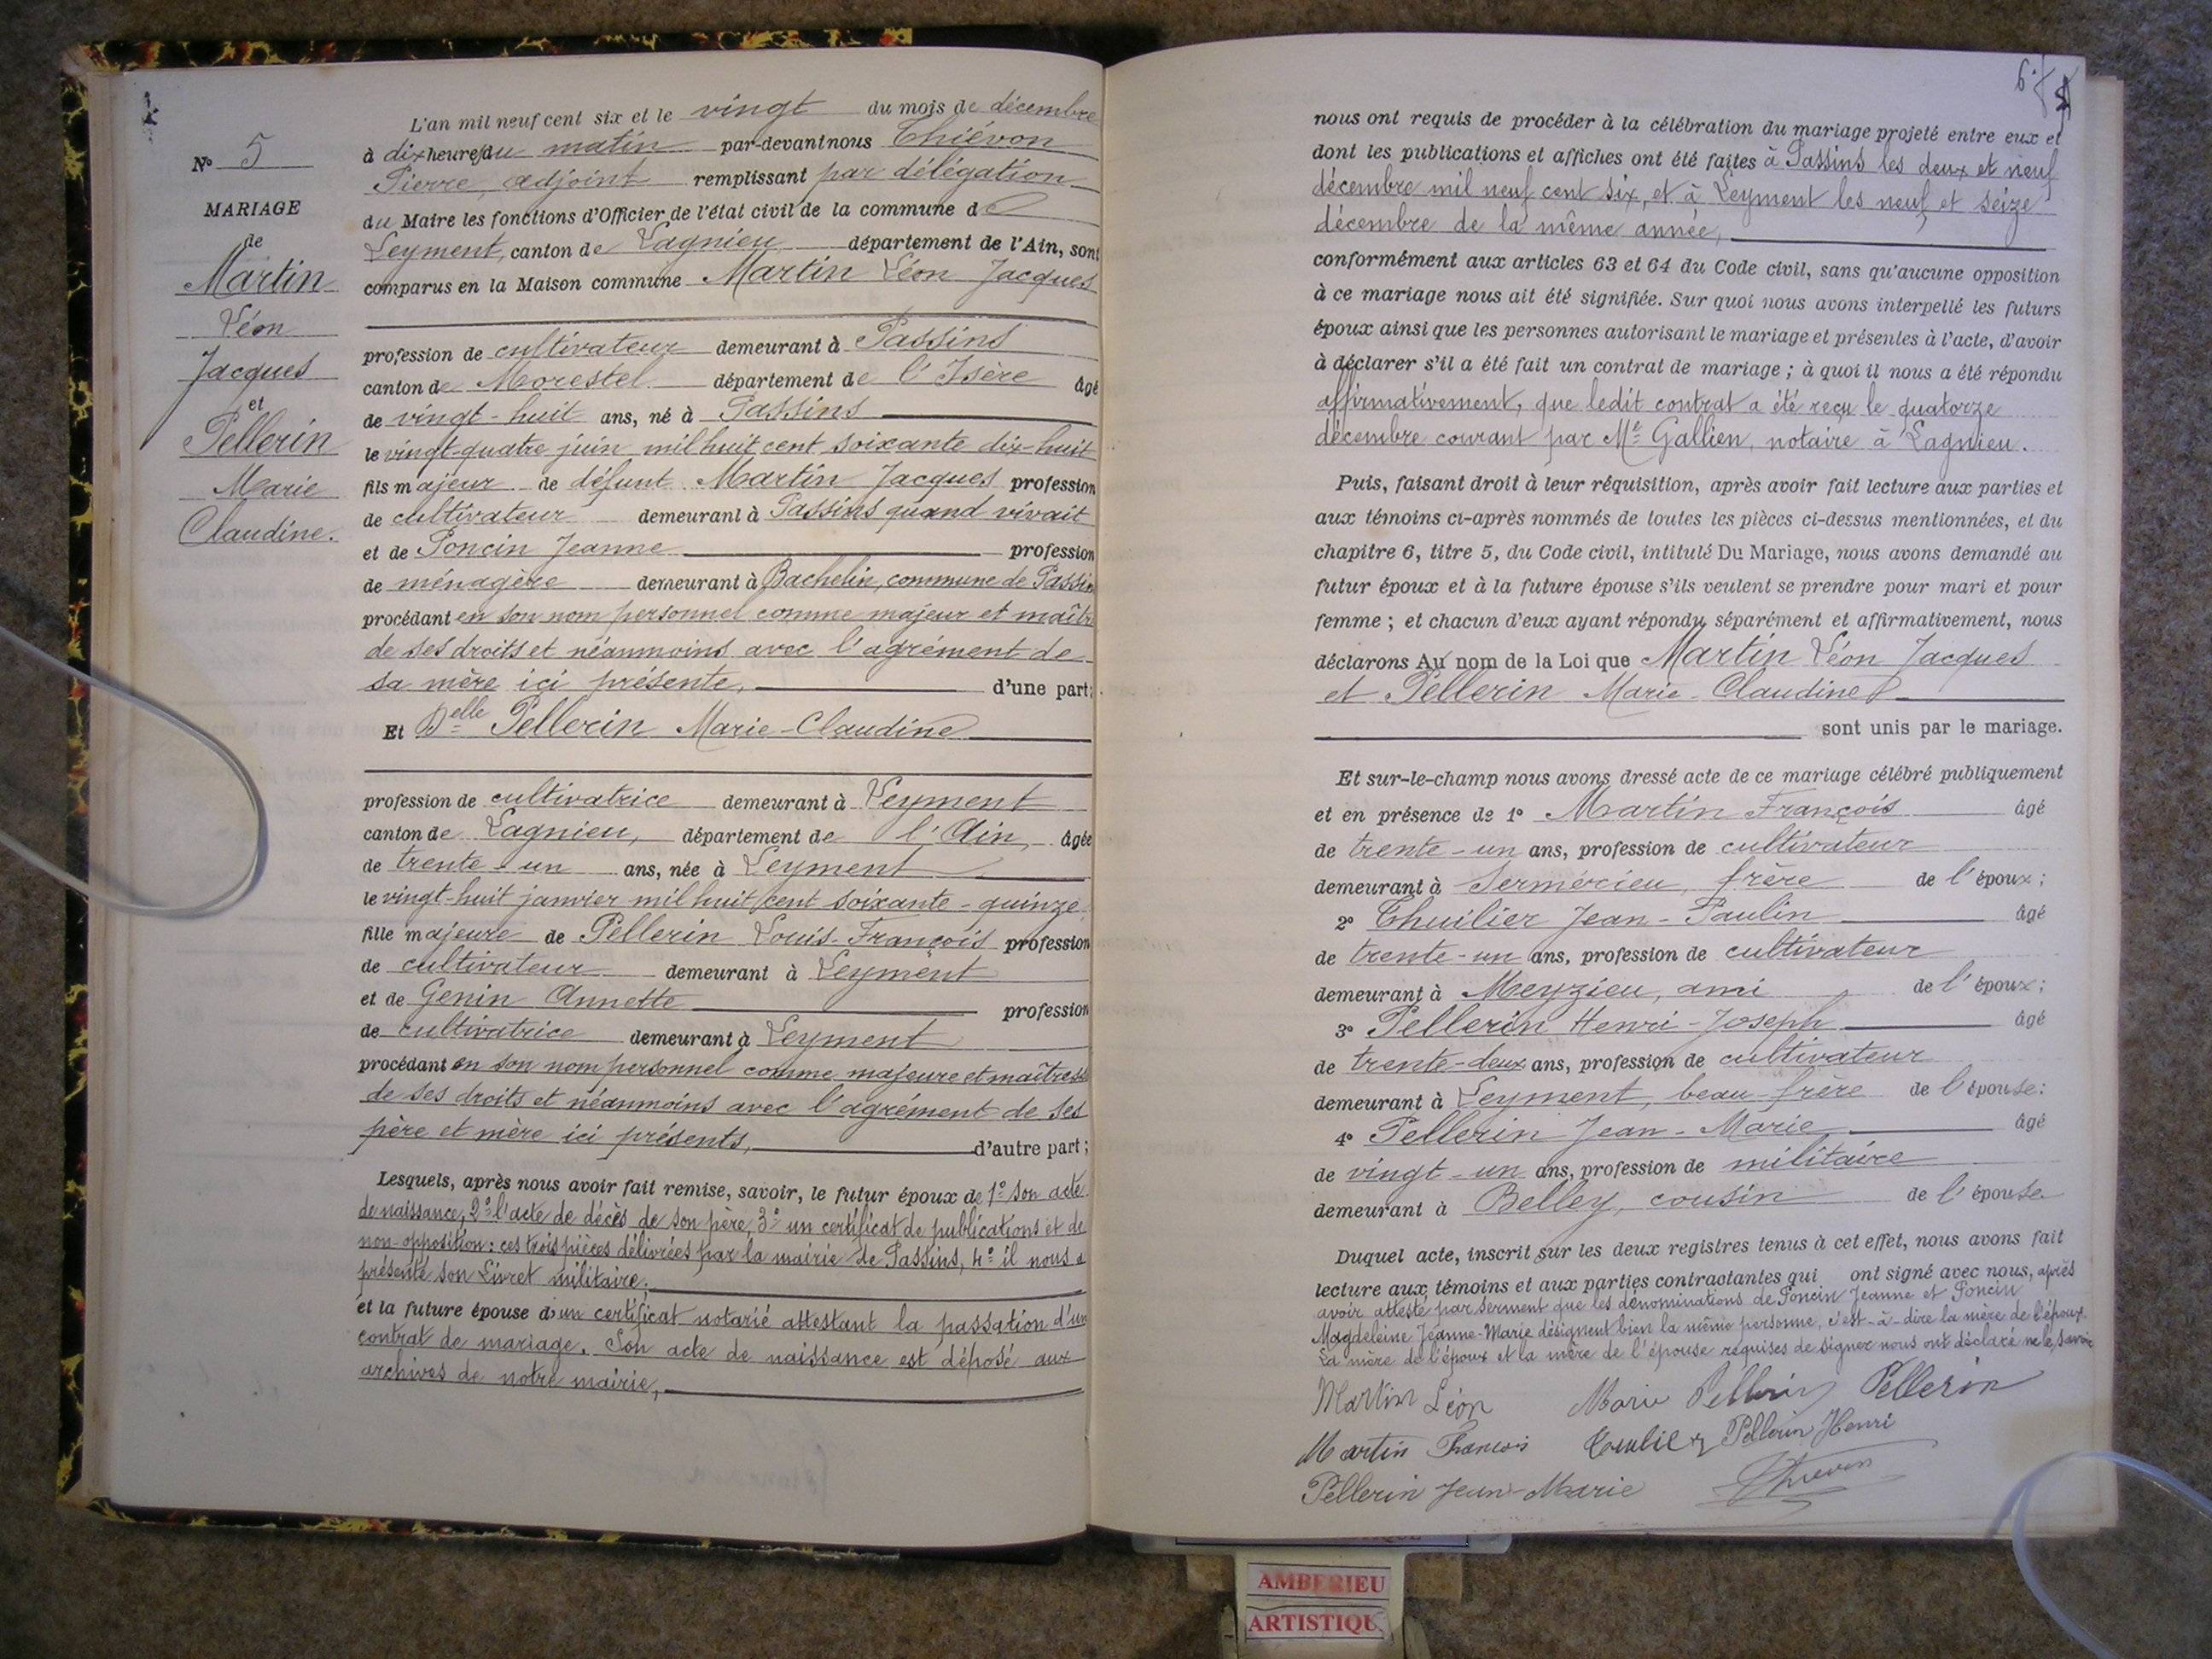 N° 5
MARIAGE
de
Martin
Léon
Jacques
et
Pellerin
Marie
Claudine.
L'an mil neuf cent six et le vingt du mois de décembre
à dix heures du matin par-devant nous Thiévon
Pierre, adjoint remplissant par délégation
du Maire les fonctions d'Officier de l'état civil de la commune de
Leyment, canton de Lagnieu, département de l'Ain, sont
comparus en la Maison commune Martin Léon Jacques
profession de cultivateur demeurant à Passins
canton de Morestel département de l'Isère âgé
de vingt-huit ans, né à Passins
le vingt-quatre juin mil huit cent soixante dix-huit
fils majeur de défunt Martin Jacques profession
de cultivateur demeurant à Passins quand vivait
et de Poncin Jeanne profession
de ménagère demeurant à Bachelin, commune de Passins
procédant en son nom personnel comme majeur et maître
de ses droits et néanmoins avec l'agrément de
sa mère ici présente, d'une part;
Et Delle Pellerin Marie-Claudine
profession de cultivatrice demeurant à Leyment
canton de Lagnieu, département de l'Ain, âgée
de trente-un ans, née à Leyment
le vingt-huit janvier mil huit cent soixante-quinze
fille majeure de Pellerin Louis-François profession
de cultivateur demeurant à Leyment
et de Genin Annette profession
de cultivatrice demeurant à Leyment
procédant en son nom personnel comme majeure et maîtresse
de ses droits et néanmoins avec l'agrément de ses
père et mère ici présents, d'autre part;
Lesquels, après nous avoir fait remise, savoir, le futur époux de 1° son acte
de naissance, 2° l'acte de décès de son père, 3° un certificat de publications et de
non-opposition: ces trois pièces délivrées par la mairie de Passins, 4° il nous a
présenté son Livret militaire;
et la future épouse d'un certificat notarié attestant la passation d'un
contrat de mariage. Son acte de naissance est déposé aux
archives de notre mairie,
6.
nous ont requis de procéder à la célébration du mariage projeté entre eux et
dont les publications et affiches ont été faites à Passins les deux et neuf
décembre mil neuf cent six, et à Leyment les neuf et seize
décembre de la même année,
conformément aux articles 63 et 64 du Code civil, sans qu'aucune opposition
à ce mariage nous ait été signifiée. Sur quoi nous avons interpellé les futurs
époux ainsi que les personnes autorisant le mariage et présentes à l'acte, d'avoir
à déclarer s'il a été fait un contrat de mariage; à quoi il nous a été répondu
affirmativement, que ledit contrat a été reçu le quatorze
décembre courant par Me Gallien, notaire à Lagnieu.
Puis, faisant droit à leur réquisition, après avoir fait lecture aux parties et
aux témoins ci-après nommés de toutes les pièces ci-dessus mentionnées, et du
chapitre 6, titre 5, du Code civil, intitulé Du Mariage, nous avons demandé au
futur époux et à la future épouse s'ils veulent se prendre pour mari et pour
femme; et chacun d'eux ayant répondu séparément et affirmativement, nous
déclarons Au nom de la Loi que Martin Léon Jacques
et Pellerin Marie-Claudine
sont unis par le mariage.
Et sur-le-champ nous avons dressé acte de ce mariage célébré publiquement
et en présence de 1° Martin François âgé
de trente-un ans, profession de cultivateur
demeurant à Sermérieu, frère de l'époux;
2° Thuilier Jean-Paulin âgé
de trente-un ans, profession de cultivateur
demeurant à Meyzieu, ami de l'époux;
3° Pellerin Henri-Joseph âgé
de trente-deux ans, profession de cultivateur
demeurant à Leyment, beau-frère de l'épouse:
4° Pellerin Jean-Marie âgé
de vingt-un ans, profession de militaire
demeurant à Belley, cousin de l'épouse
Duquel acte, inscrit sur les deux registres tenus à cet effet, nous avons fait
lecture aux témoins et aux parties contractantes qui ont signé avec nous, après
avoir attesté par serment que les dénominations de Poncin Jeanne et Poncin
Magdeleine Jeanne-Marie désignent bien la même personne, c'est-à-dire la mère de l'époux.
La mère de l'époux et la mère de l'épouse requises de signer nous ont déclaré ne le savoir
Martin Léon Marie Pellerin Pellerin
Martin François Pellerin Henri
Pellerin Jean-Marie Thievon
AMBERIEU
ARTISTIQU